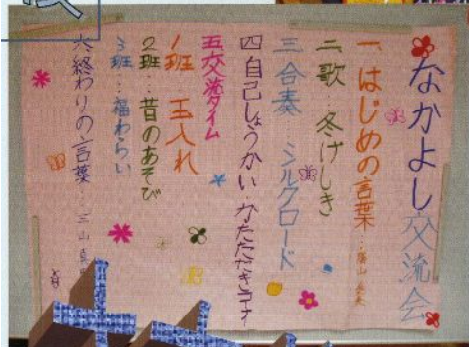 なかよし交流会
一、はじめの言葉…
二、歌…冬げしき
三合奏 シルクロード
四自己しょうかい・かたたたきコーナー
五交流タイム
1班 玉入れ
2班…昔のあそび
3班…福わらい
六、終わりの言葉…三山